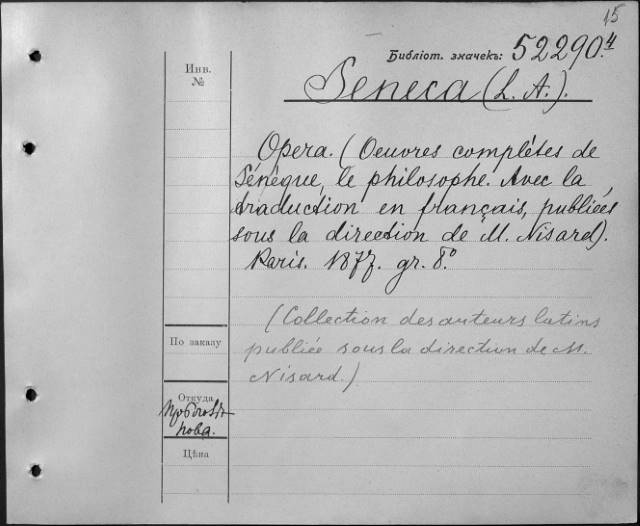 15
Библіот. значекъ: 52290.4
Инв.
№
Seneca (L. A.).
Opera. (Oeuvres complétes de
Sénèque, le philosophe. Avec la
traduction en français, publiées
sous la direction de M. Nisard).
Paris. 1877. gr. 8.°
(Collection des auteurs latins
publiée sous la direction de M.
Nisard.)
По заказу
Откуда
Цѣна